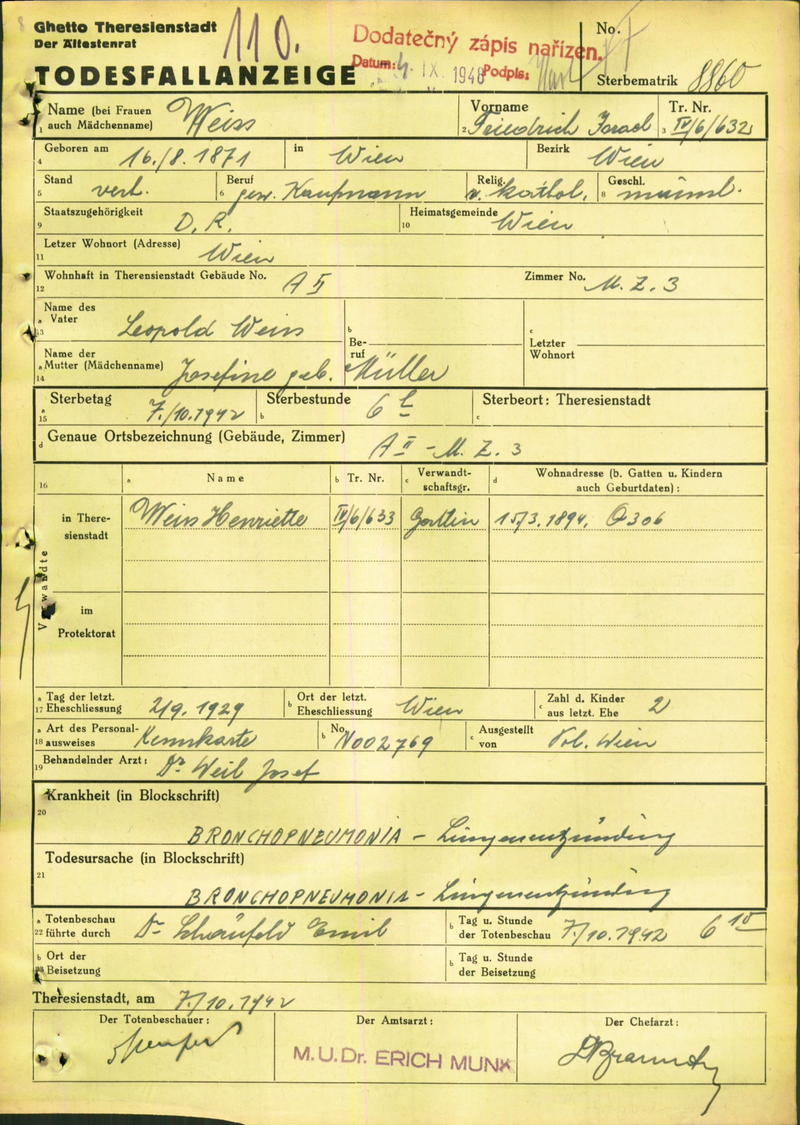 Ghetto Theresienstadt
Der Ältestenrat
110.
Dodatečný zápis nařízen.
Datum: 4. IX 1948 Podpis:
No.
TODESFALLANZEIGE
Sterbematrik 8860
Name (bei Frauen auch Mädchenname) Weiss
Vorname Friedrich Israel
Tr. Nr. IV/6/632
1 2 3
Geboren am 16./8. 1871 in Wien Bezirk Wien
4
Stand verh. Beruf gew. Kaufmann Relig. r. kathol. Geschl. männl.
5 6 8
Staatszugehörigkeit D. R. Heimatsgemeinde Wien
9 10
Letzer Wohnort (Adresse) Wien
11
Wohnhaft in Theresienstadt Gebäude No. A II Zimmer No. M. Z. 3
12
Name des Vater Leopold Weiss
a 13
b Beruf
c Letzter Wohnort
Name der Mutter (Mädchenname) Josefine geb. Müller
a 14
Sterbetag 7./10. 1942 Sterbestunde 6 h Sterbeort: Theresienstadt
a 15 b c
d Genaue Ortsbezeichnung (Gebäude, Zimmer) A II - M. Z. 3
16 a Name b Tr. Nr. c Verwandtschaftsgr. d Wohnadresse (b. Gatten u. Kindern auch Geburtdaten):
Verwandte
in Theresienstadt Weiss Henriette IV/6/633 Gattin 15/3. 1894, Q 306
im Protektorat
a 17 Tag der letzt. Eheschliessung 2/9. 1929 b Ort der letzt. Eheschliessung Wien c Zahl d. Kinder aus letzt. Ehe 2
a 18 Art des Personalausweises Kennkarte b No. N002769 c Ausgestellt von Pol. Wien
19 Behandelnder Arzt: Dr Weil Josef
Krankheit (in Blockschrift)
20
BRONCHOPNEUMONIA - Lungenentzündung
Todesursache (in Blockschrift)
21
BRONCHOPNEUMONIA - Lungenentzündung
a 22 Totenbeschau führte durch Dr Schönfeld Emil b Tag u. Stunde der Totenbeschau 7./10. 1942 6 10
b Ort der Beisetzung b Tag u. Stunde der Beisetzung
Theresienstadt, am 7./10. 1942
Der Totenbeschauer: Der Amtsarzt: Der Chefarzt:
M.U.Dr. ERICH MUNK